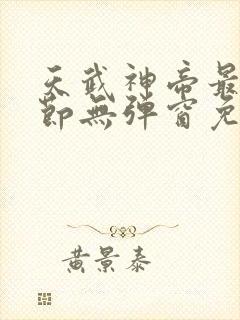 天武神帝最
節無彈窗免
黄景泰